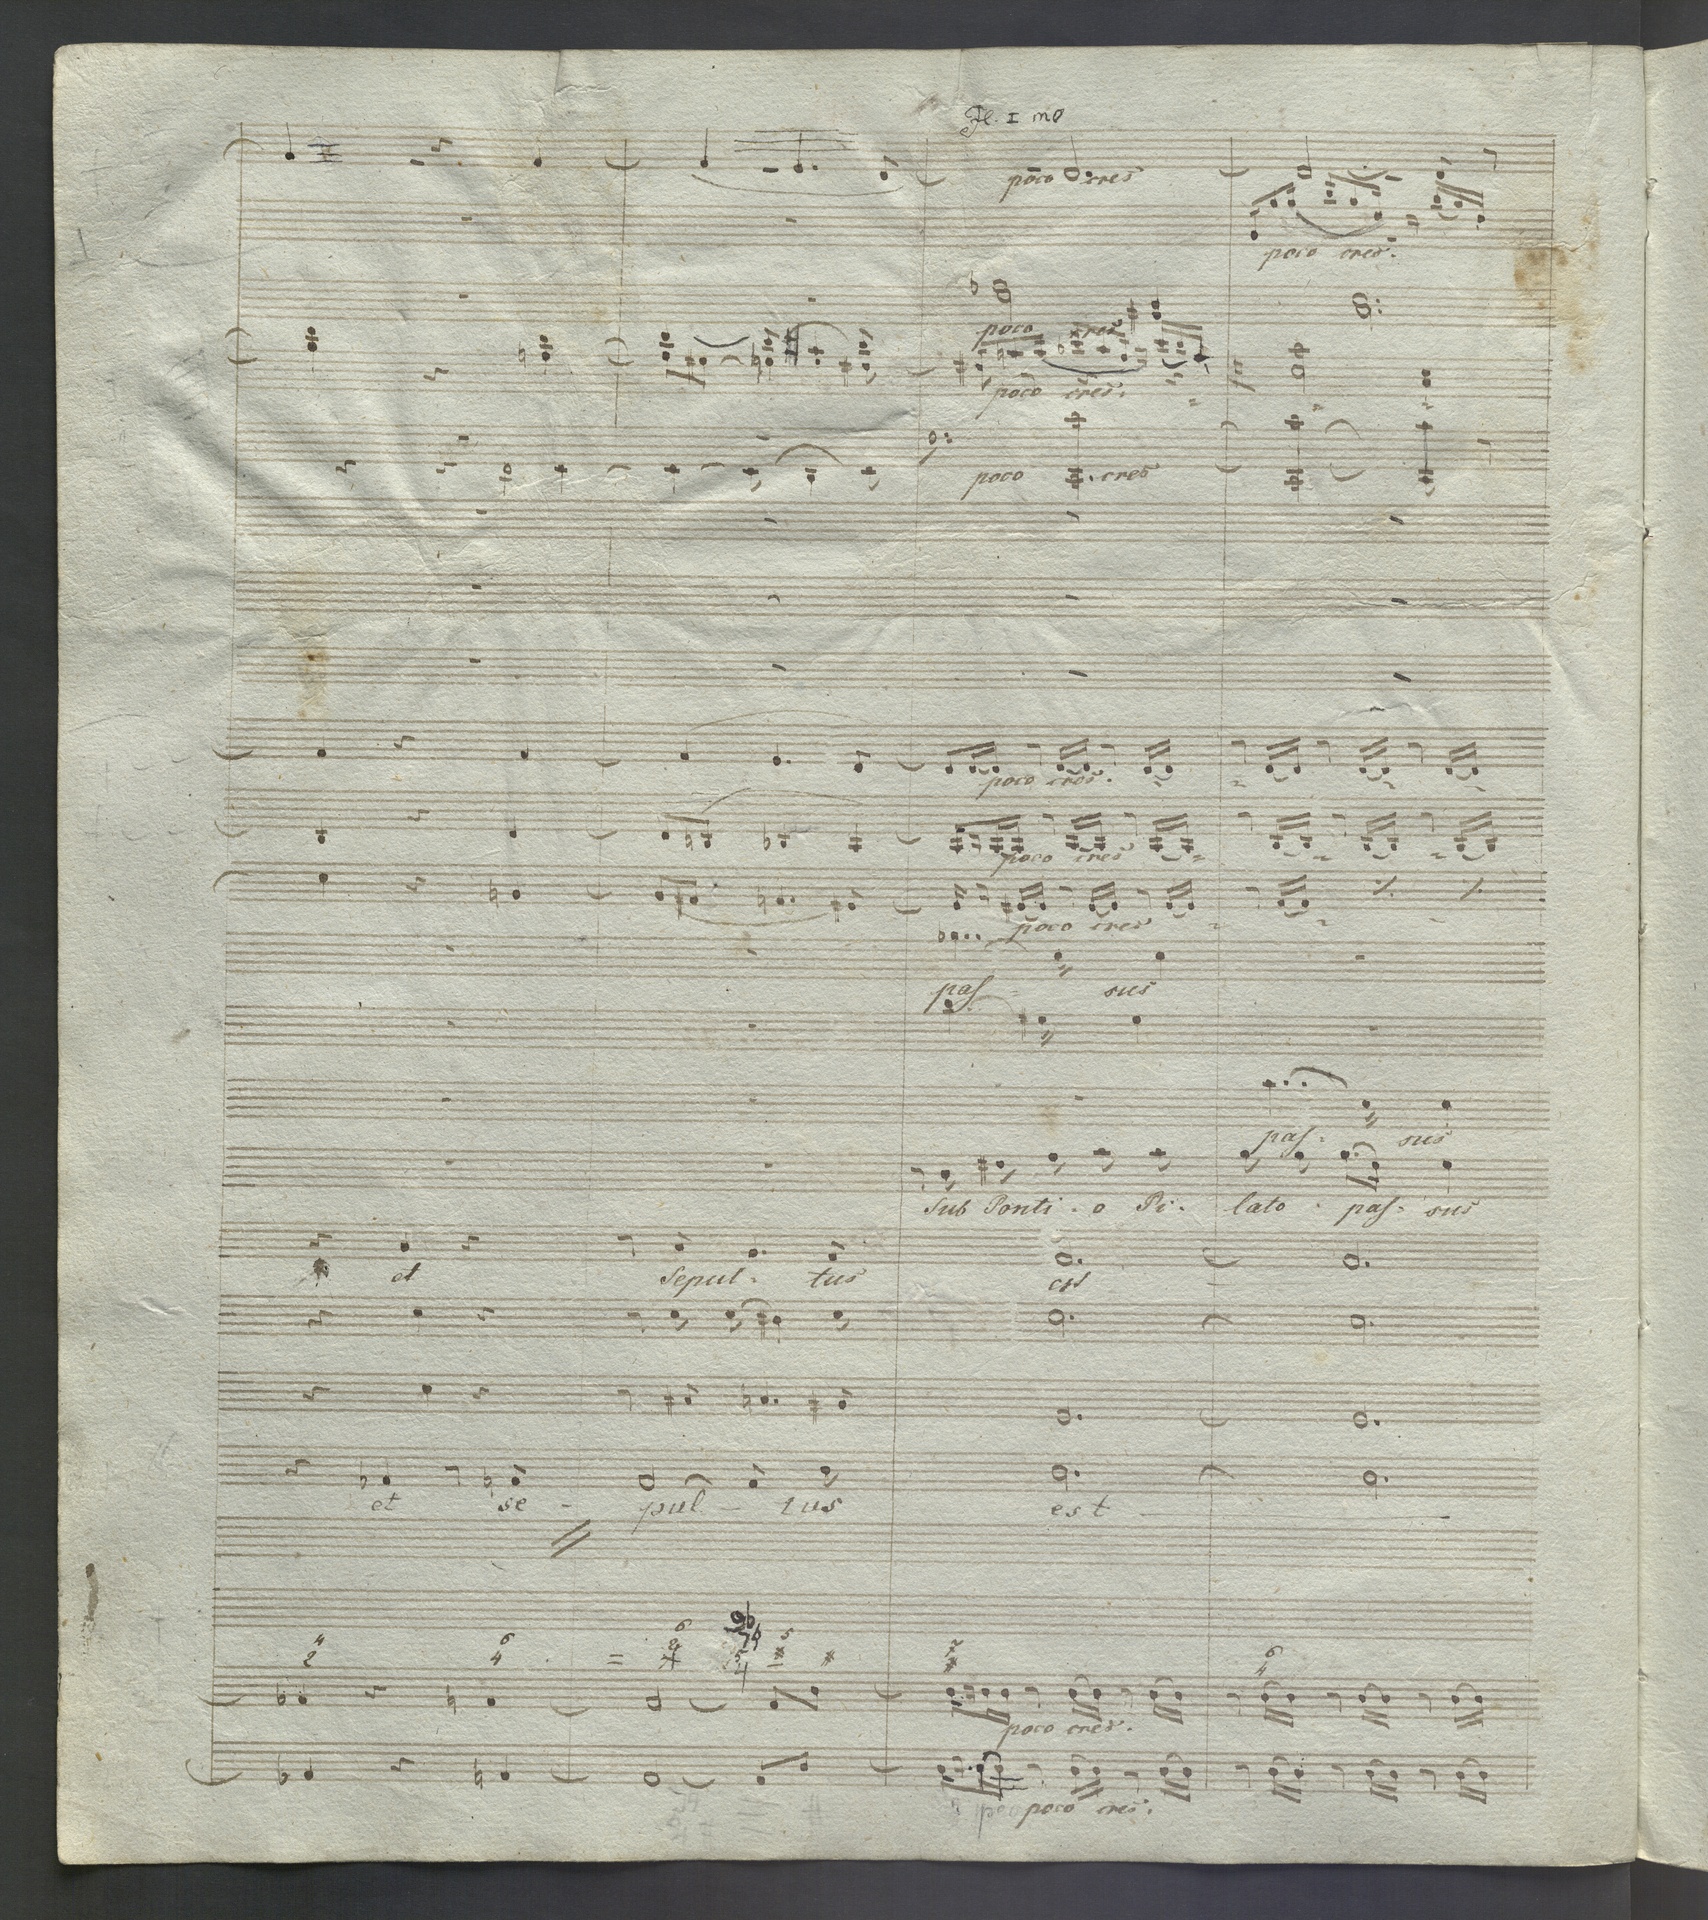 Fl. I mo
poco cres
poco cres.
poco cres
poco cres.
poco cres
poco cres.
poco cres
poco cres
pas - sus
pas - sus
Sub Ponti - o Pi - lato - pas - sus
et Sepul - tus est
et se - pul - tus est
4 6 6 5 6
2 4 4
poco cres.
poco cres.